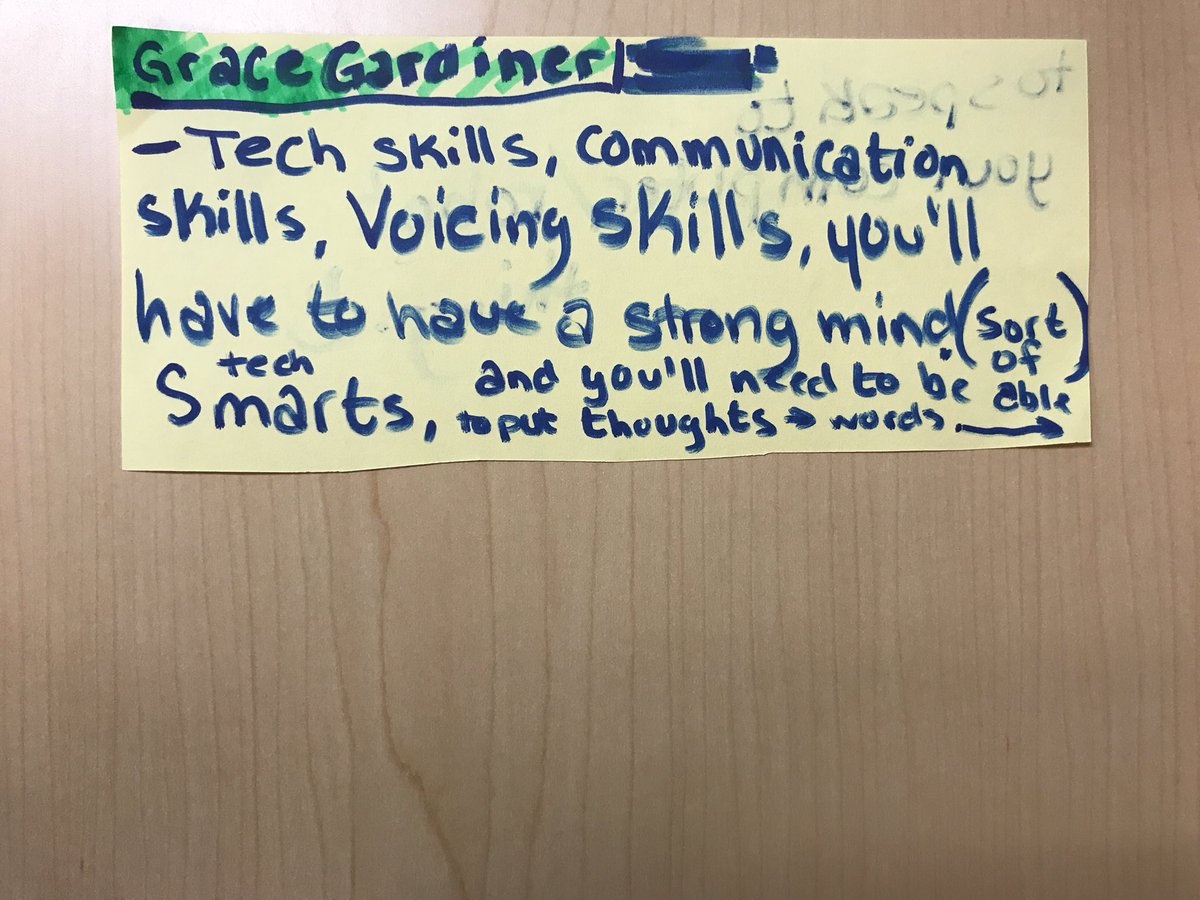 Grace Gardiner
- Tech skills, communication
skills, Voicing skills, you'll
have to have a strong mind (sort of)
tech
Smarts, and you'll need to be able
to put thoughts → words.
to speak to
you